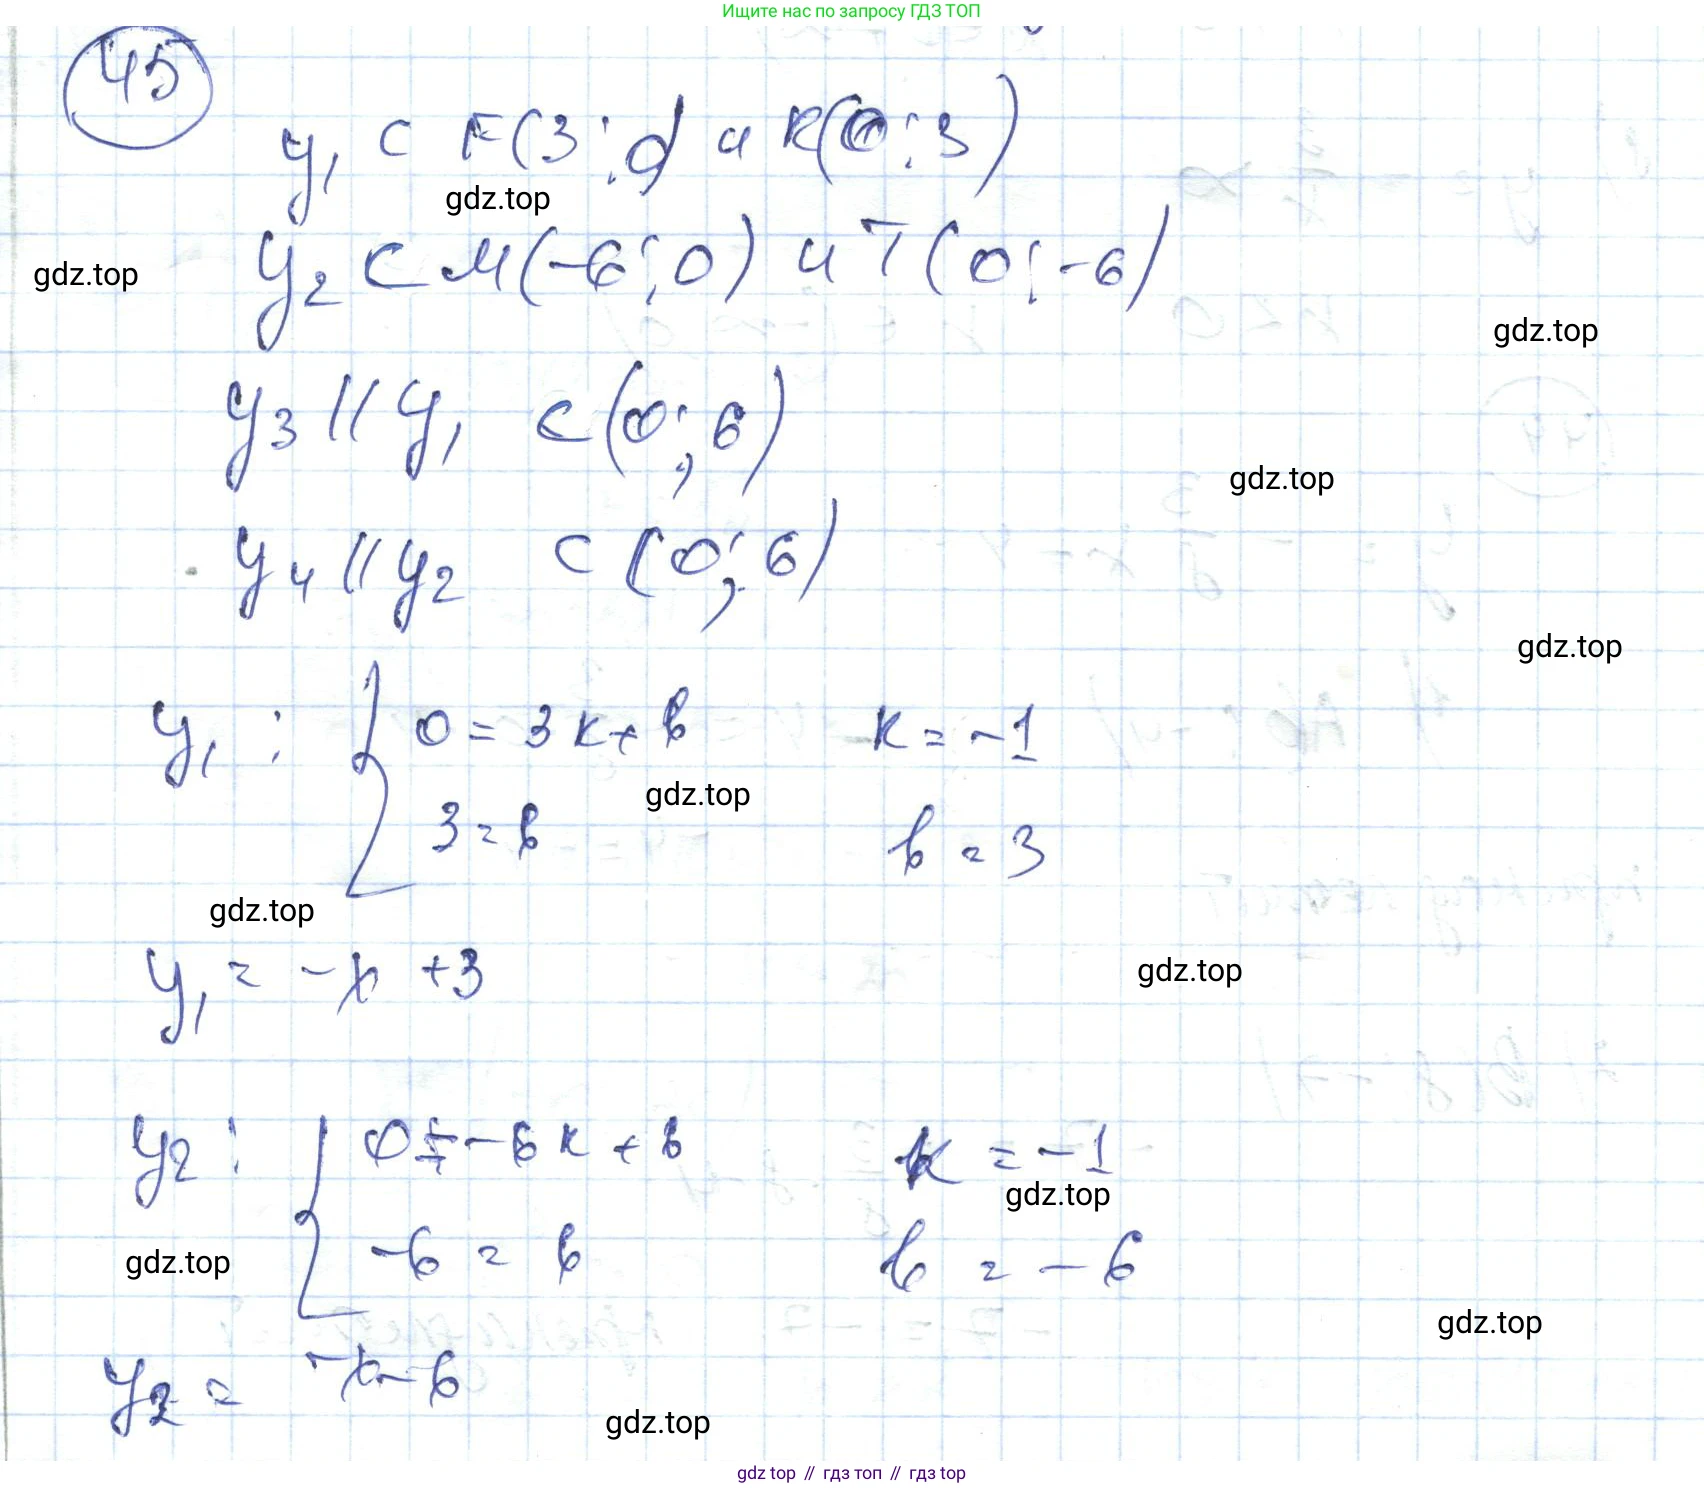 Ищите нас по запросу ГДЗ ТОП
45
y₁ с F(3; 0) и K(0; 3)
gdz.top
y₂ с M(-6; 0) и T(0; -6)
gdz.top
gdz.top
y₃ // y₁ с (0; 6)
gdz.top
y₄ // y₂ с (0; 6)
gdz.top
y₁ : { 0 = 3k + b k = -1
gdz.top
3 = b b = 3
gdz.top
y₁ = -x + 3
gdz.top
y₂ : { 0 = -6k + b k = -1
gdz.top
-6 = b b = -6
gdz.top
gdz.top
y₂ = -x - 6
gdz.top
gdz top // гдз топ // гдз top